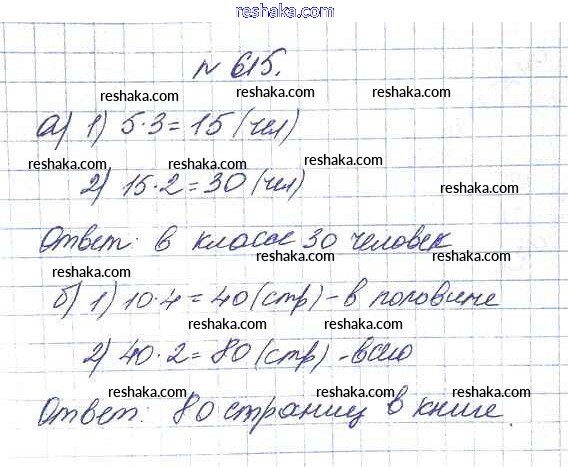 www.reshaka.com
№ 615.
reshaka.com reshaka.com
а) 1) 5·3=15 (чел)
reshaka.com reshaka.com reshaka.com
2) 15·2=30 (чел)
reshaka.com reshaka.com
Ответ: в классе 30 человек
reshaka.com reshaka.com reshaka.com
б) 1) 10·4=40 (стр) - в половине
reshaka.com reshaka.com
2) 40·2=80 (стр) - всего
reshaka.com reshaka.com reshaka.com
Ответ: 80 страниц в книге.
reshaka.com reshaka.com